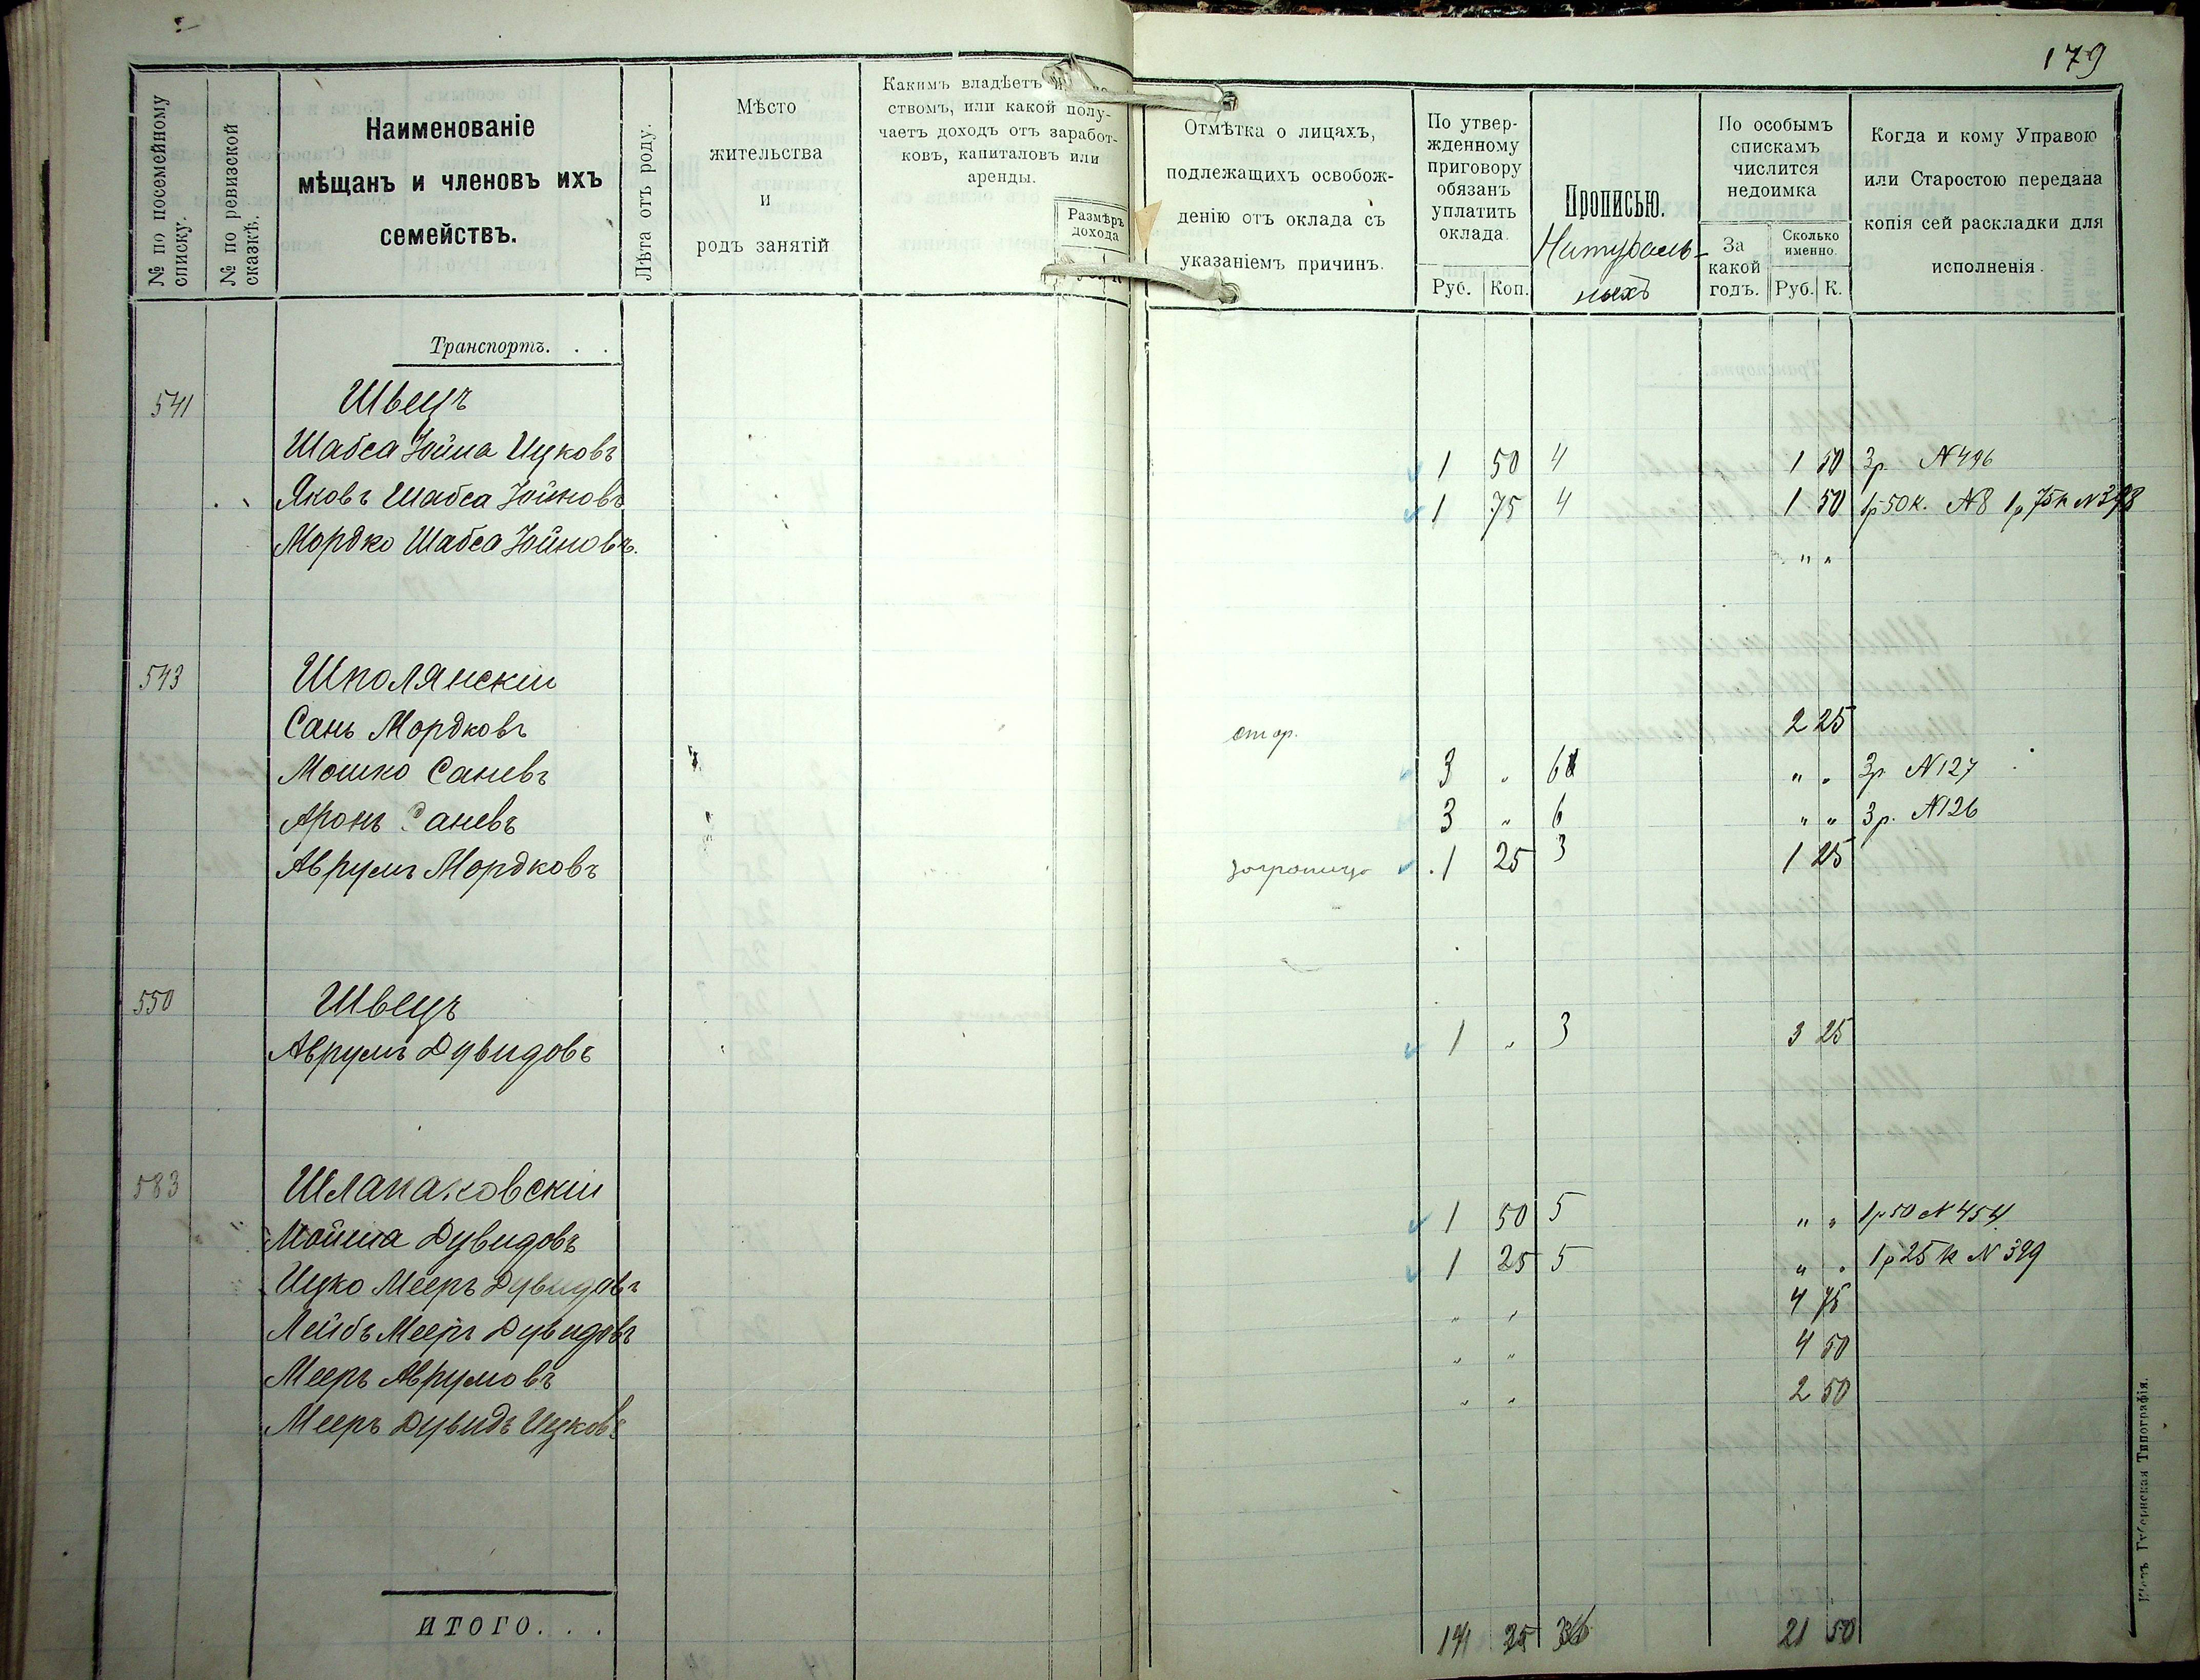 179
№ по посемейному списку.
№ по ревизской сказкѣ.
Наименованіе
мѣщанъ и членовъ ихъ
семействъ.
Лѣта отъ роду.
Мѣсто
жительства
и
родъ занятій
Какимъ владѣетъ
ствомъ, или какой полу-
чаетъ доходъ отъ заработ-
ковъ, капиталовъ или
аренды.
Размѣръ
дохода
Отмѣтка о лицахъ,
подлежащихъ освобож-
денію отъ оклада съ
указаніемъ причинъ.
По утвер-
жденному
приговору
обязанъ
уплатить
оклада.
Руб. Коп.
Прописью.
Натураль-
ныхъ
По особымъ
спискамъ
числится
недоимка
За
какой
годъ.
Сколько
именно.
Руб. К.
Когда и кому Управою
или Старостою передана
копія сей раскладки для
исполненія.
Транспортъ. . .
541 Швецъ
Шабса Іойна Ицковъ 1 50 4 1 50 3р. N496
Яковъ Шабса Іойновъ 1 75 4 1 50 1р 50к. N8 1р 75к N398
Мордко Шабса Іойновъ. " "
543 Шполянскій
Сань Мордковъ 2 25
Мошко Саневъ 3 " 6 " " 3р N127
Аронъ Саневъ 3 " 6 " " 3р. N126
Аврумъ Мордковъ заграницу 1 25 3 1 25
550 Швецъ
Аврумъ Дувидовъ 1 " 3 3 25
583 Шлапаковскій
Мойша Дувидовъ 1 50 5 " " 1р 50 N454
Ицко Мееръ Дувидовъ 1 25 5 " " 1р 25к N399
Лейбъ Мееръ Дувидовъ " " 4 75
Мееръ Аврумовъ " " 4 50
Мееръ Дувидъ Ицковъ " " 2 50
ИТОГО. . . 21 50
Губернская Типографія.